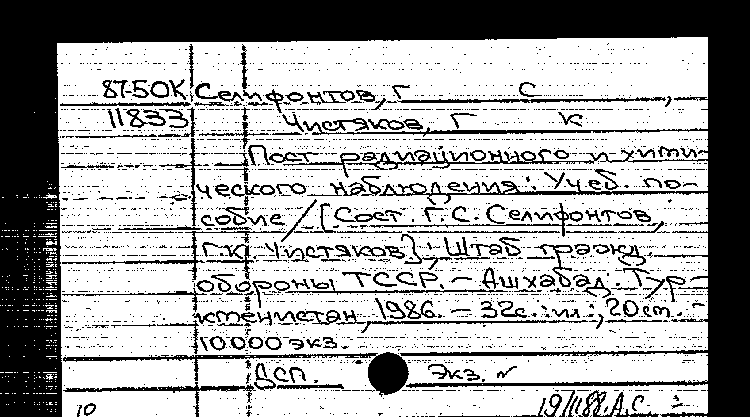 87-50К Селифонтов, Г С ,
11833 Чистяков, Г К
Пост радиационного и хими-
ческого наблюдения: Учеб. по-
собие / [Сост. Г. С. Селифонтов,
Г.К. Чистяков]; Штаб гражд.
обороны ТССР. – Ашхабад: Тур-
кменистан, 1986. – 32с.: ил.; 20см. –
10000 экз.
ДСП. Экз. №
10